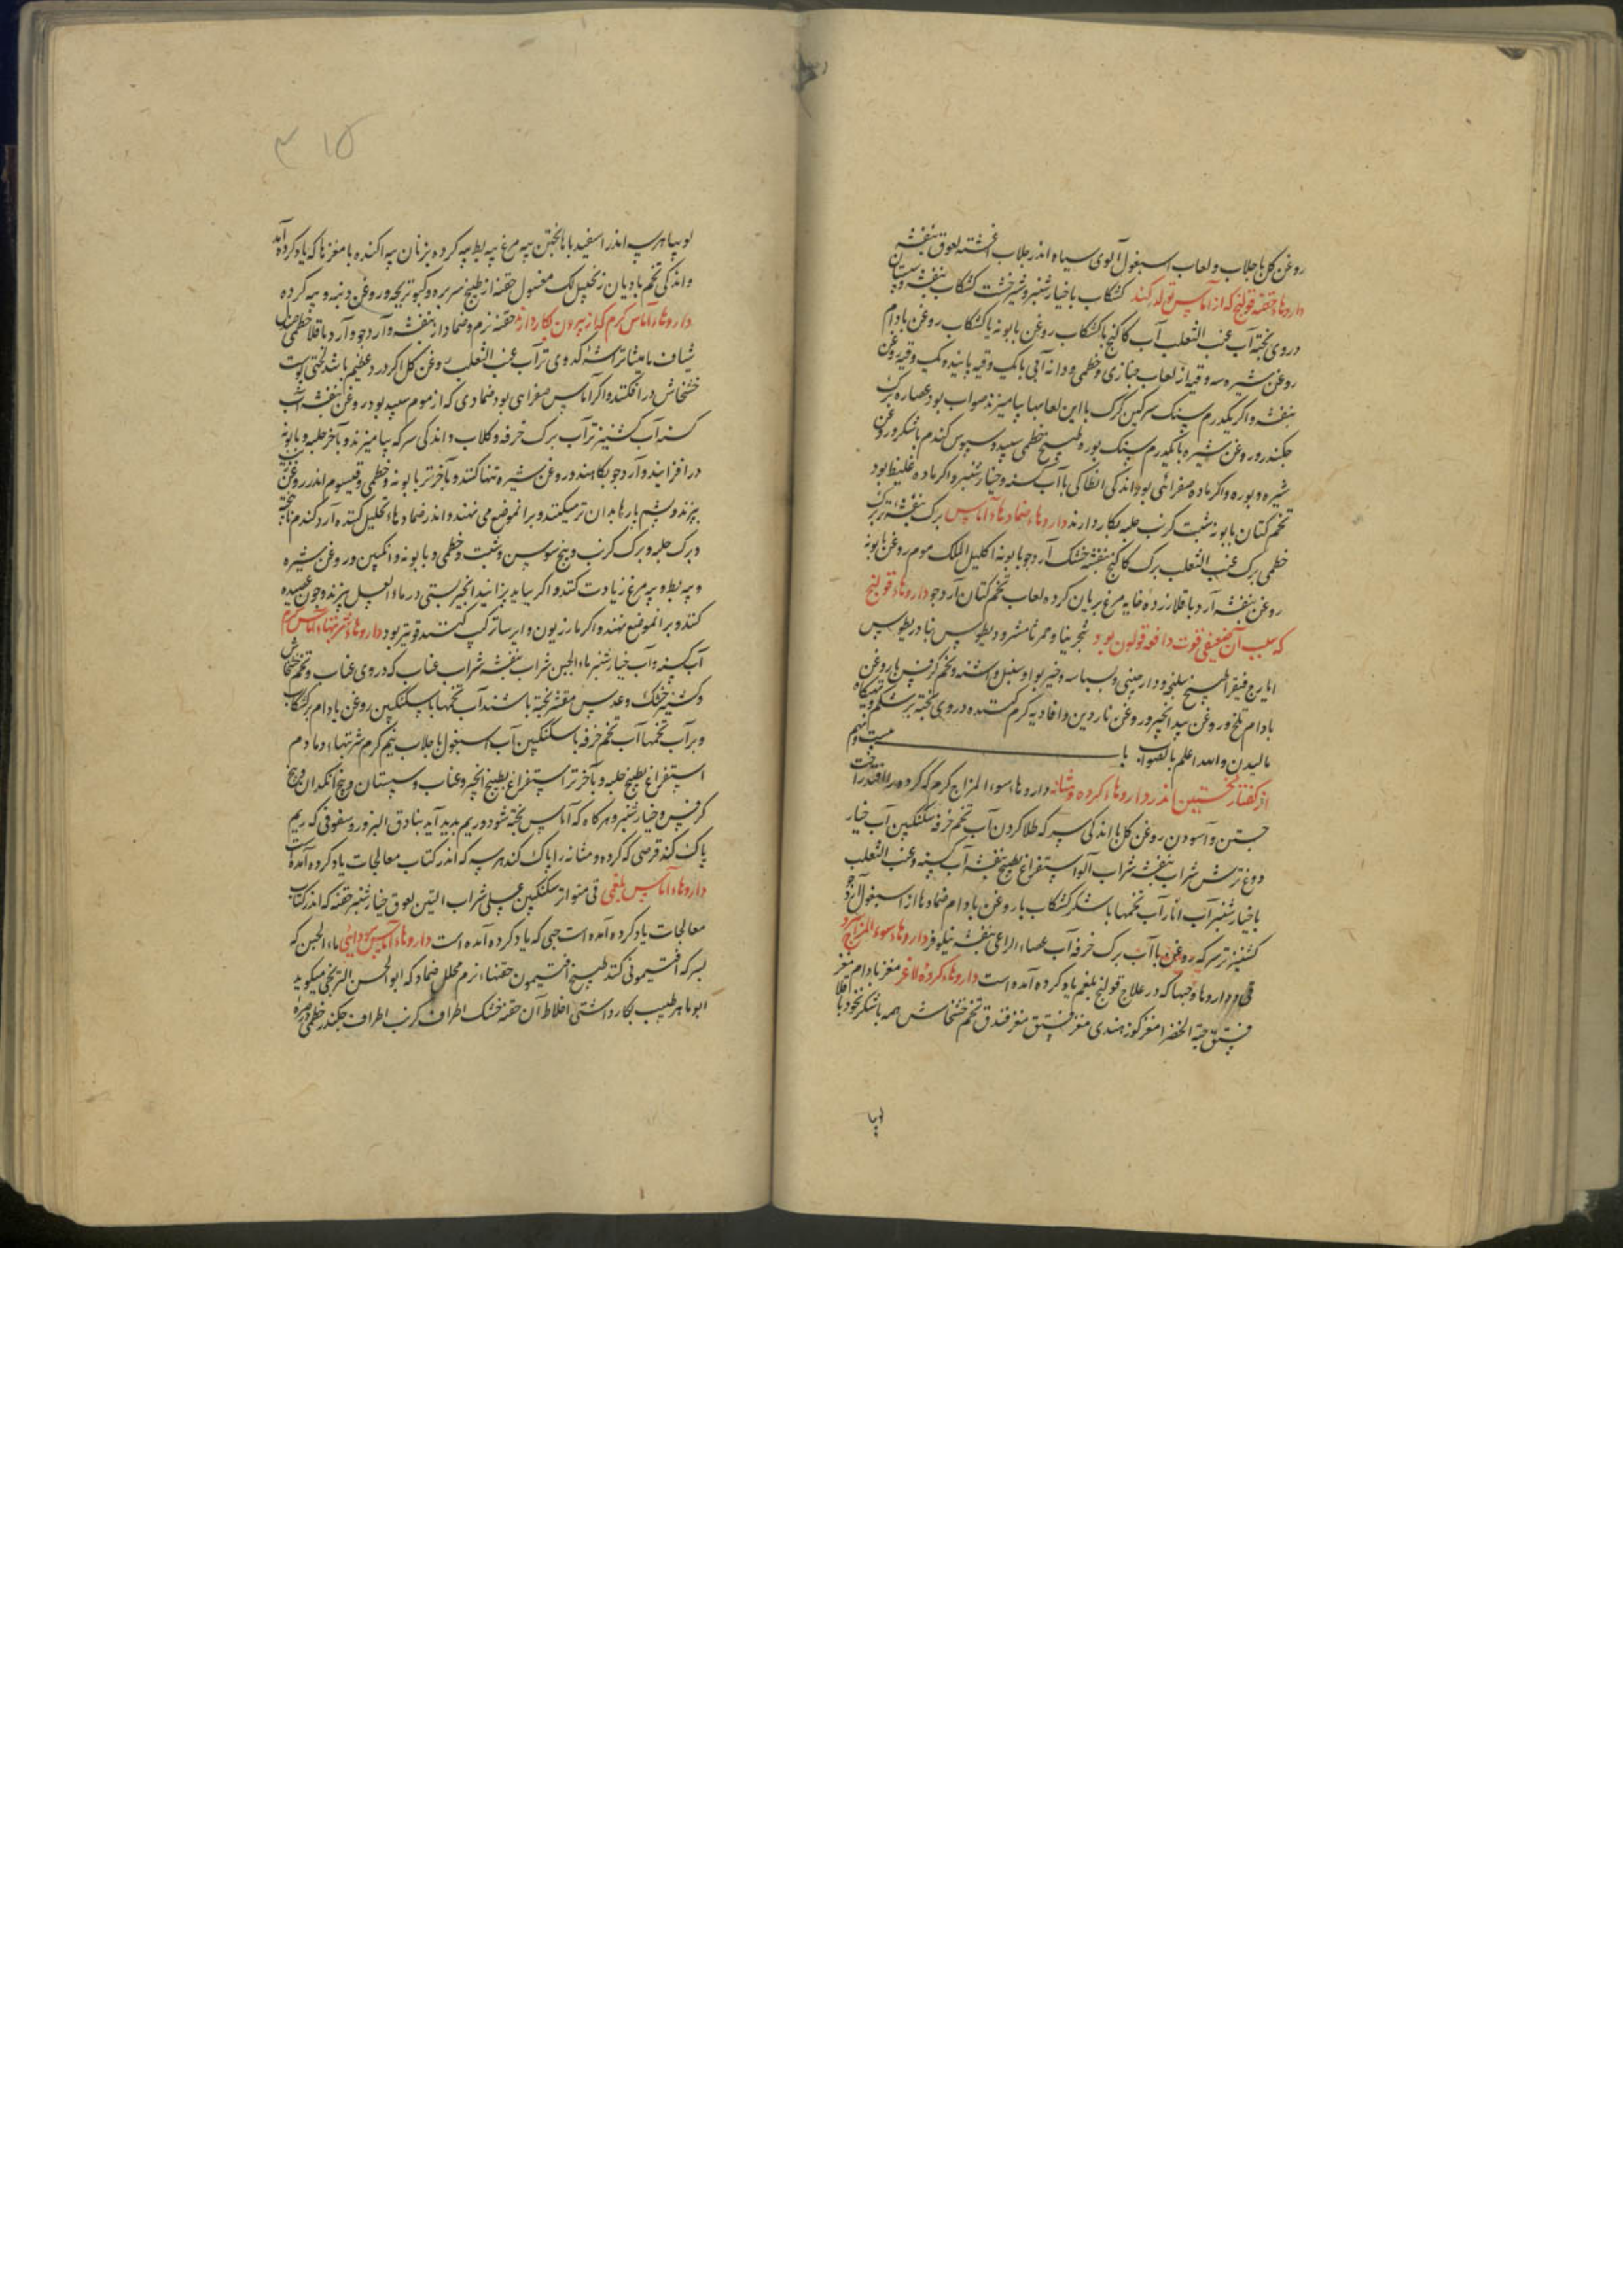 روغن کل با جلاب و لعاب اسبغول آلوی سیاه اندر جلاب اغشته لعوق بنفشه
داروهاء حقنه قولنج که از آماس تولد کند کشکاب با خیارشنبر و شیرخشت کشکاب بنفشه و سپستان
دروی پخته آب عنب الثعلب آب کاکنج با کشکاب روغن بابونه با کشکاب روغن بادام
روغن شیره سه وقیه از لعاب خبازی و خطمی و دانه آبی با یک وقیه پانیذ و یک وقیه روغن
بنفشه و اکر یکدرم سنک سرکین کرک با این لعابها بیامیزند صواب بود عصاره برک
جکندر و روغن شیره با یکدرم سنک بوره طبیخ خطمی سپید و سبوس کندم با شکر و روغن
شیره و بوره و اکر ماده صفرائی بود اندکی انطاکی با آب کسنه و خیارشنبر و اکر ماده غلیظ بود
تخم کتان بابونه شبت کرنب حلبه بکار دارند داروهاء ضمادهاء آماس برک بنفشه تر برک
خطمی برک عنب الثعلب برک کاکنج بنفشه خشک آرد جو بابونه اکلیل الملک موم روغن بابونه
روغن بنفشه آرد باقلا زرده خایه مرغ بریان کرده لعاب تخم کتان آرد جو داروهاء قولنج
که سبب آن ضعیفی قوت دافعه قولون بود شجرینا و
ایارج فیقرا طبیخ سلیخه و دارچینی و بسباسه و خیربوا و سنبل و اشنه و تخم کرفس با روغن
بادام تلخ و روغن بید انجیر و روغن ناردین و افاویه کرم کننده دروی پخته بر شکم و تهیکاه
مالیدن والله اعلم بالصواب باب بیست و نهم
از کفتار نخستین اندر داروهاء کرده و مثانه داروهاء سوء المزاج کرم که کرده را افتد راحت
جستن و آسودن روغن کل با اندکی سرکه طلا کردن آب تخم خرفه سکنکبین آب خیار
دوغ ترش شراب بنفشه شراب آلو استفراغ بطبیخ بنفشه آب کسنه و عنب الثعلب
با خیارشنبر آب انار آب تخمها با شکر کشکاب با روغن بادام ضمادها از اسبغول آرد جو
کشنیز تر سرکه روغن با آب برک خرفه آب عصاء الراعی بنفشه نیلوفر داروهاء سوء المزاج سرد
داروها و حبها که در علاج قولنج بلغم یاد کرده آمده است داروهاء کرده لاغر مغز بادام مغز
فستق حبة الخضرا مغز کوز هندی مغز فستق مغز فندق تخم خشخاش همه با شکر نخود باقلا
لوبیا
۳۱۵
لوبیا هریسه اندر اسفیدباها پختن پیه مرغ پیه بط پیه کرده بز نان پیه اکنده با مغزها که یاد کرده آمد
واندکی تخم بادیان زنجبیل لک مغسول حقنه از طبیخ سر بره و کبوتر بچه و روغن دنبه و پیه کرده
داروهاء آماس کرم کی از بیرون بکار دارند حقنه نرم و ضماد از بنفشه و آرد جو و آرد باقلا خطمی صندل
شیاف مامیثا تراشه کدوی تر آب عنب الثعلب روغن کل اکر درد عظیم باشد لختی پوست
خشخاش درافکنند و اکر آماس صفرایی بود ضمادی که از موم سپید بود در روغن بنفشه آب
کسنه آب کشنیز تر آب برک خرفه و کلاب و اندکی سرکه بیامیزند و بآخر حلبه و بابونه
درافزایند و آرد جو بکاهند و روغن شیره تنها کنند و بآخرتر بابونه و خطمی و قیسوم اندر روغن
بپزند و پشم پارها بدان ترمیکنند و بر آن موضع می نهند و اندر ضمادهاء تحلیل کننده آرد کندم
و برک حلبه و برک کرنب و بیخ سوسن و شبت و خطمی و بابونه و انکبین و روغن شیره
و پیه بط و پیه مرغ زیادت کنند و اکر بباید پزانید انجیر بستی در ماء العسل بپزند و چون عصیده
کنند و بر آن موضع نهند و اکر مازریون و ایرسا ترکیب کنند قویتر بود داروهاء شربتهاء آماس کرم
آب کسنه و آب خیارشنبر ماء الجبن شراب بنفشه شراب عناب که دروی عناب و تخم خشخاش
و کشنیز خشک و عدس مقشر پخته باشند آب تخمها با سکنکبین روغن بادام بر کشکاب
و بر آب تخمها آب تخم خرفه با سکنکبین آب اسبغول با جلاب نیم کرم شربتهاء دمادم
استفراغ بطبیخ حلبه و بآخرتر استفراغ بطبیخ انجیر و عناب و سپستان و بیخ انکدان و بیخ
کرفس و خیارشنبر و هرکاه که آماس پخته شود و ریم پدید آید بنادق البزور و سفوفی که ریم
پاک کند قرصی که کرده و مثانه را پاک کند هرسه که اندر کتاب معالجات یاد کرده آمده است
داروهاء آماس بلغمی قی متواتر سکنکبین عسلی شراب التین لعوق خیارشنبر حقنه که اندر کتاب
معالجات یاد کرده آمده است حبی که یاد کرده آمده است داروهاء آماس سودائی ماء الجبن که
بسرکه افتیمونی کنند طبیخ افتیمون حقنهاء نرم محلل ضماد که ابوالحسن الترنجی میکوید
ابوماهر طبیب بکار داشتی اخلاط آن حقنه خشک اطراف کرنب اطراف جکندر خطمی